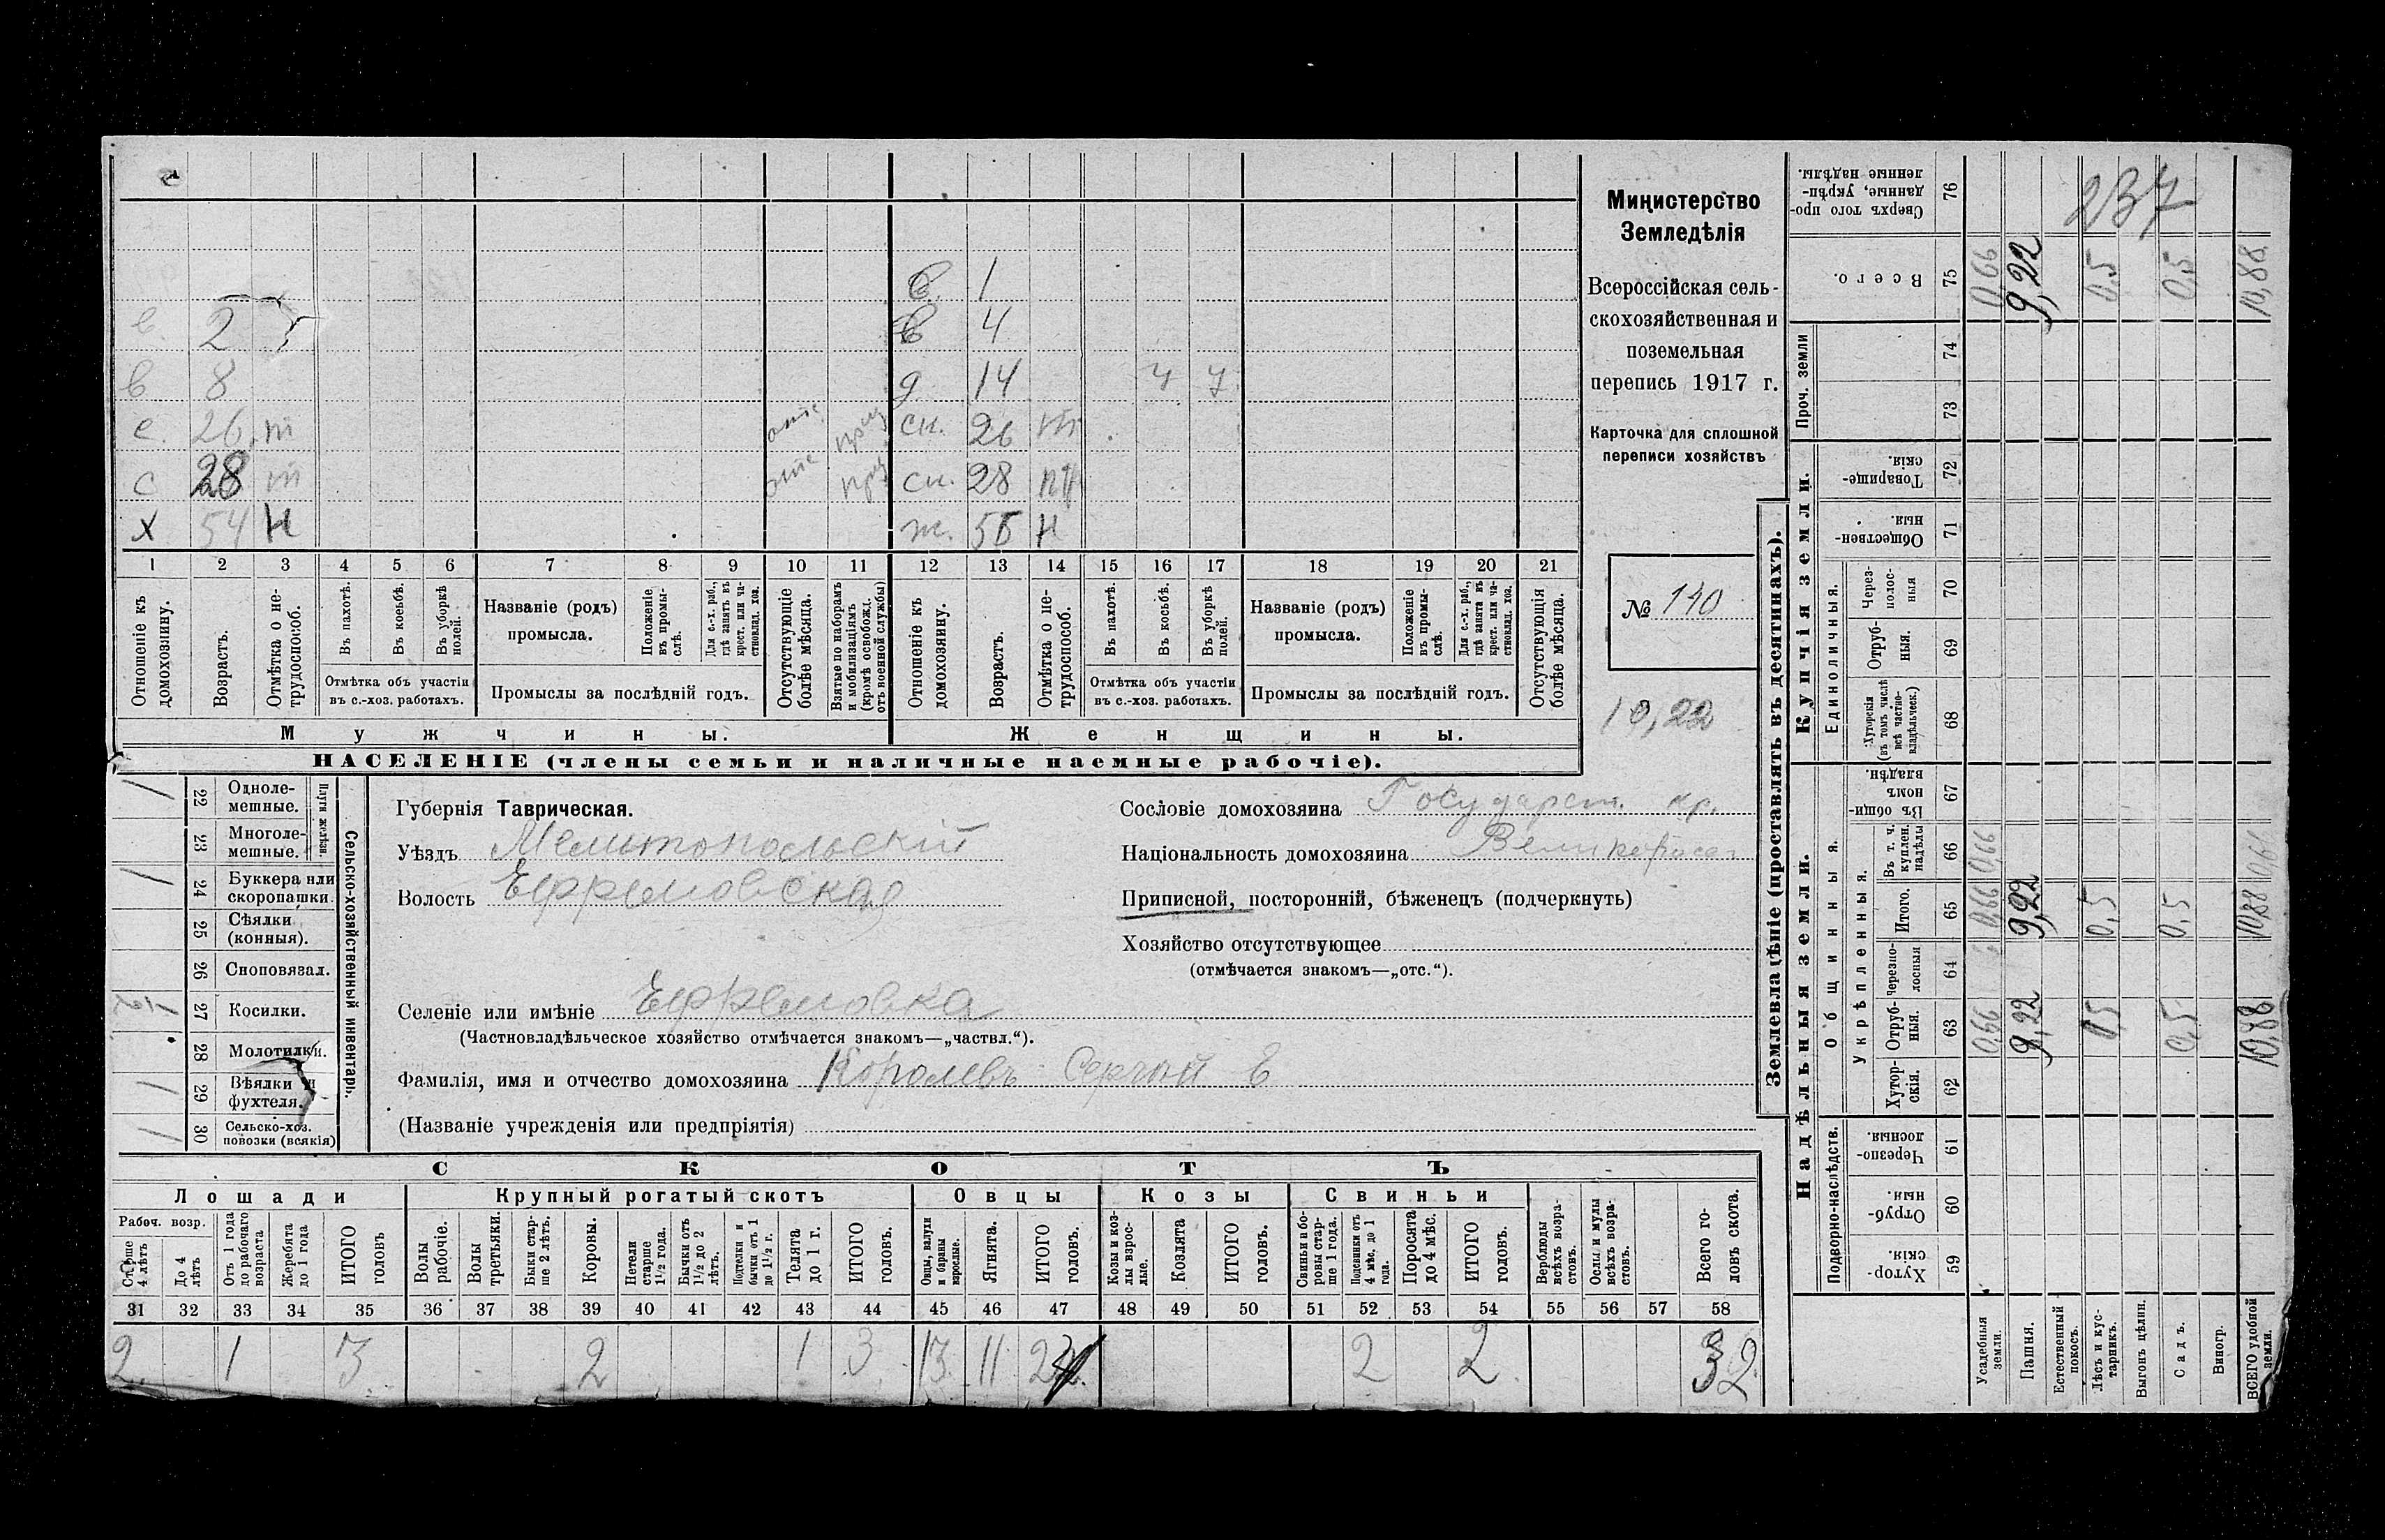 в. 1
в. 2 в 4
в 8 д 14 ч ч
с. 26 т отс сн. 26 т
с 28 т отс сн. 28 т
х 54 н ж. 55 н
1 2 3 4 5 6 7 8 9 10 11 12 13 14 15 16 17 18 19 20 21
Отношеніе къ домохозяину.
Возрастъ.
Отмѣтка о нетрудоспособ.
Въ пахотѣ.
Въ косьбѣ.
Въ уборкѣ полей.
Отмѣтка объ участіи въ с.-хоз. работахъ.
Названіе (родъ) промысла.
Положеніе въ промыслѣ.
Для с.-х. раб., гдѣ занятъ въ крест. или частновлад. хоз.
Промыслы за послѣдній годъ.
Отсутствующіе болѣе мѣсяца.
Взятые по наборамъ и мобилизаціямъ (кромѣ освобожд. отъ военной службы)
Отношеніе къ домохозяину.
Возрастъ.
Отмѣтка о нетрудоспособ.
Въ пахотѣ.
Въ косьбѣ.
Въ уборкѣ полей.
Отмѣтка объ участіи въ с.-хоз. работахъ.
Названіе (родъ) промысла.
Положеніе въ промыслѣ.
Для с.-х. раб., гдѣ занята въ крест. или частновлад. хоз.
Промыслы за послѣдній годъ.
Отсутствующія болѣе мѣсяца.
Мужчины. Женщины.
НАСЕЛЕНІЕ (члены семьи и наличные наемные рабочіе).
Министерство
Земледѣлія
Всероссійская сель-
скохозяйственная и
поземельная
перепись 1917 г.
Карточка для сплошной
переписи хозяйствъ
№ 140
10,22
22 Одноле-мешные. 1
23 Многоле-мешные.
Плуги желѣзн.
24 Буккера или скоропашки. 1
25 Сѣялки (конныя).
26 Сноповязал.
27 Косилки.
28 Молотилки.
29 Вѣялки и фухтеля. 1
30 Сельско-хоз. повозки (всякія) 1
Сельско-хозяйственный инвентарь.
Губернія Таврическая.
Уѣздъ Мелитопольскій
Волость Ефремовская
Селеніе или имѣніе Ефремовка
(Частновладѣльческое хозяйство отмѣчается знакомъ—„частвл.“).
Фамилія, имя и отчество домохозяина Королевъ Сергѣй Е
(Названіе учрежденія или предпріятія)
Сословіе домохозяина Государст. кр.
Національность домохозяина Великоросс
Приписной, посторонній, бѣженецъ (подчеркнуть)
Хозяйство отсутствующее
(отмѣчается знакомъ—„отс.“).
СКОТЪ
Лошади Крупный рогатый скотъ Овцы Козы Свиньи
Рабоч. возр.
Старше 4 лѣтъ
До 4 лѣтъ
Отъ 1 года до рабочаго возраста
Жеребята до 1 года
ИТОГО головъ
Волы рабочіе.
Волы третьяки.
Быки старше 2 лѣтъ.
Коровы.
Петели старше 1½ года.
Бычки отъ 1½ до 2 лѣтъ.
Подтелки и бычки отъ 1 до 1½ г.
Телята до 1 г.
ИТОГО головъ.
Овцы, валухи и бараны взрослые.
Ягнята.
ИТОГО головъ.
Козы и козлы взрослые.
Козлята
ИТОГО головъ.
Свиньи и боровы старше 1 года.
Подсвинки отъ 4 мѣс. до 1 года.
Поросята до 4 мѣс.
ИТОГО головъ.
Верблюды всѣхъ возрастовъ.
Ослы и мулы всѣхъ возрастовъ.
Всего головъ скота.
31 32 33 34 35 36 37 38 39 40 41 42 43 44 45 46 47 48 49 50 51 52 53 54 55 56 57 58
2 1 3 2 1 3 13 11 24 2 2 32
Землевладѣніе (проставлять въ десятинахъ).
Надѣльныя земли. Купчія земли. Проч. земли
Подворно-наслѣдств.
Общинныя.
Укрѣпленныя.
Единоличныя.
Хуторскія. 59
Отрубныя. 60
Черезполосныя. 61
Хуторскія. 62
Отрубныя. 63
Черезполосныя 64
Итого. 65
Въ т. ч. куплен. надѣлы 66
Въ общинномъ владѣн. 67
Хуторскія (въ томъ числѣ всѣ частновладѣльческ.) 68
Отрубныя. 69
Черезполосныя 70
Общественныя. 71
Товарищескія. 72
73
74
Всего. 75
Сверхъ того проданные, укрѣпленные надѣлы. 76
Усадебныя земли. 0,66 0,66 0,66 0,66
Пашня. 9,22 9,22 9,22
Естественный покосъ.
Лѣсъ и кустарникъ. 0,5 0,5 0,5
Выгонъ цѣлин.
Садъ. 0,5 0,5 0,5
Виногр.
ВСЕГО удобной земли. 10,88 10,88 0,66 10,88
237